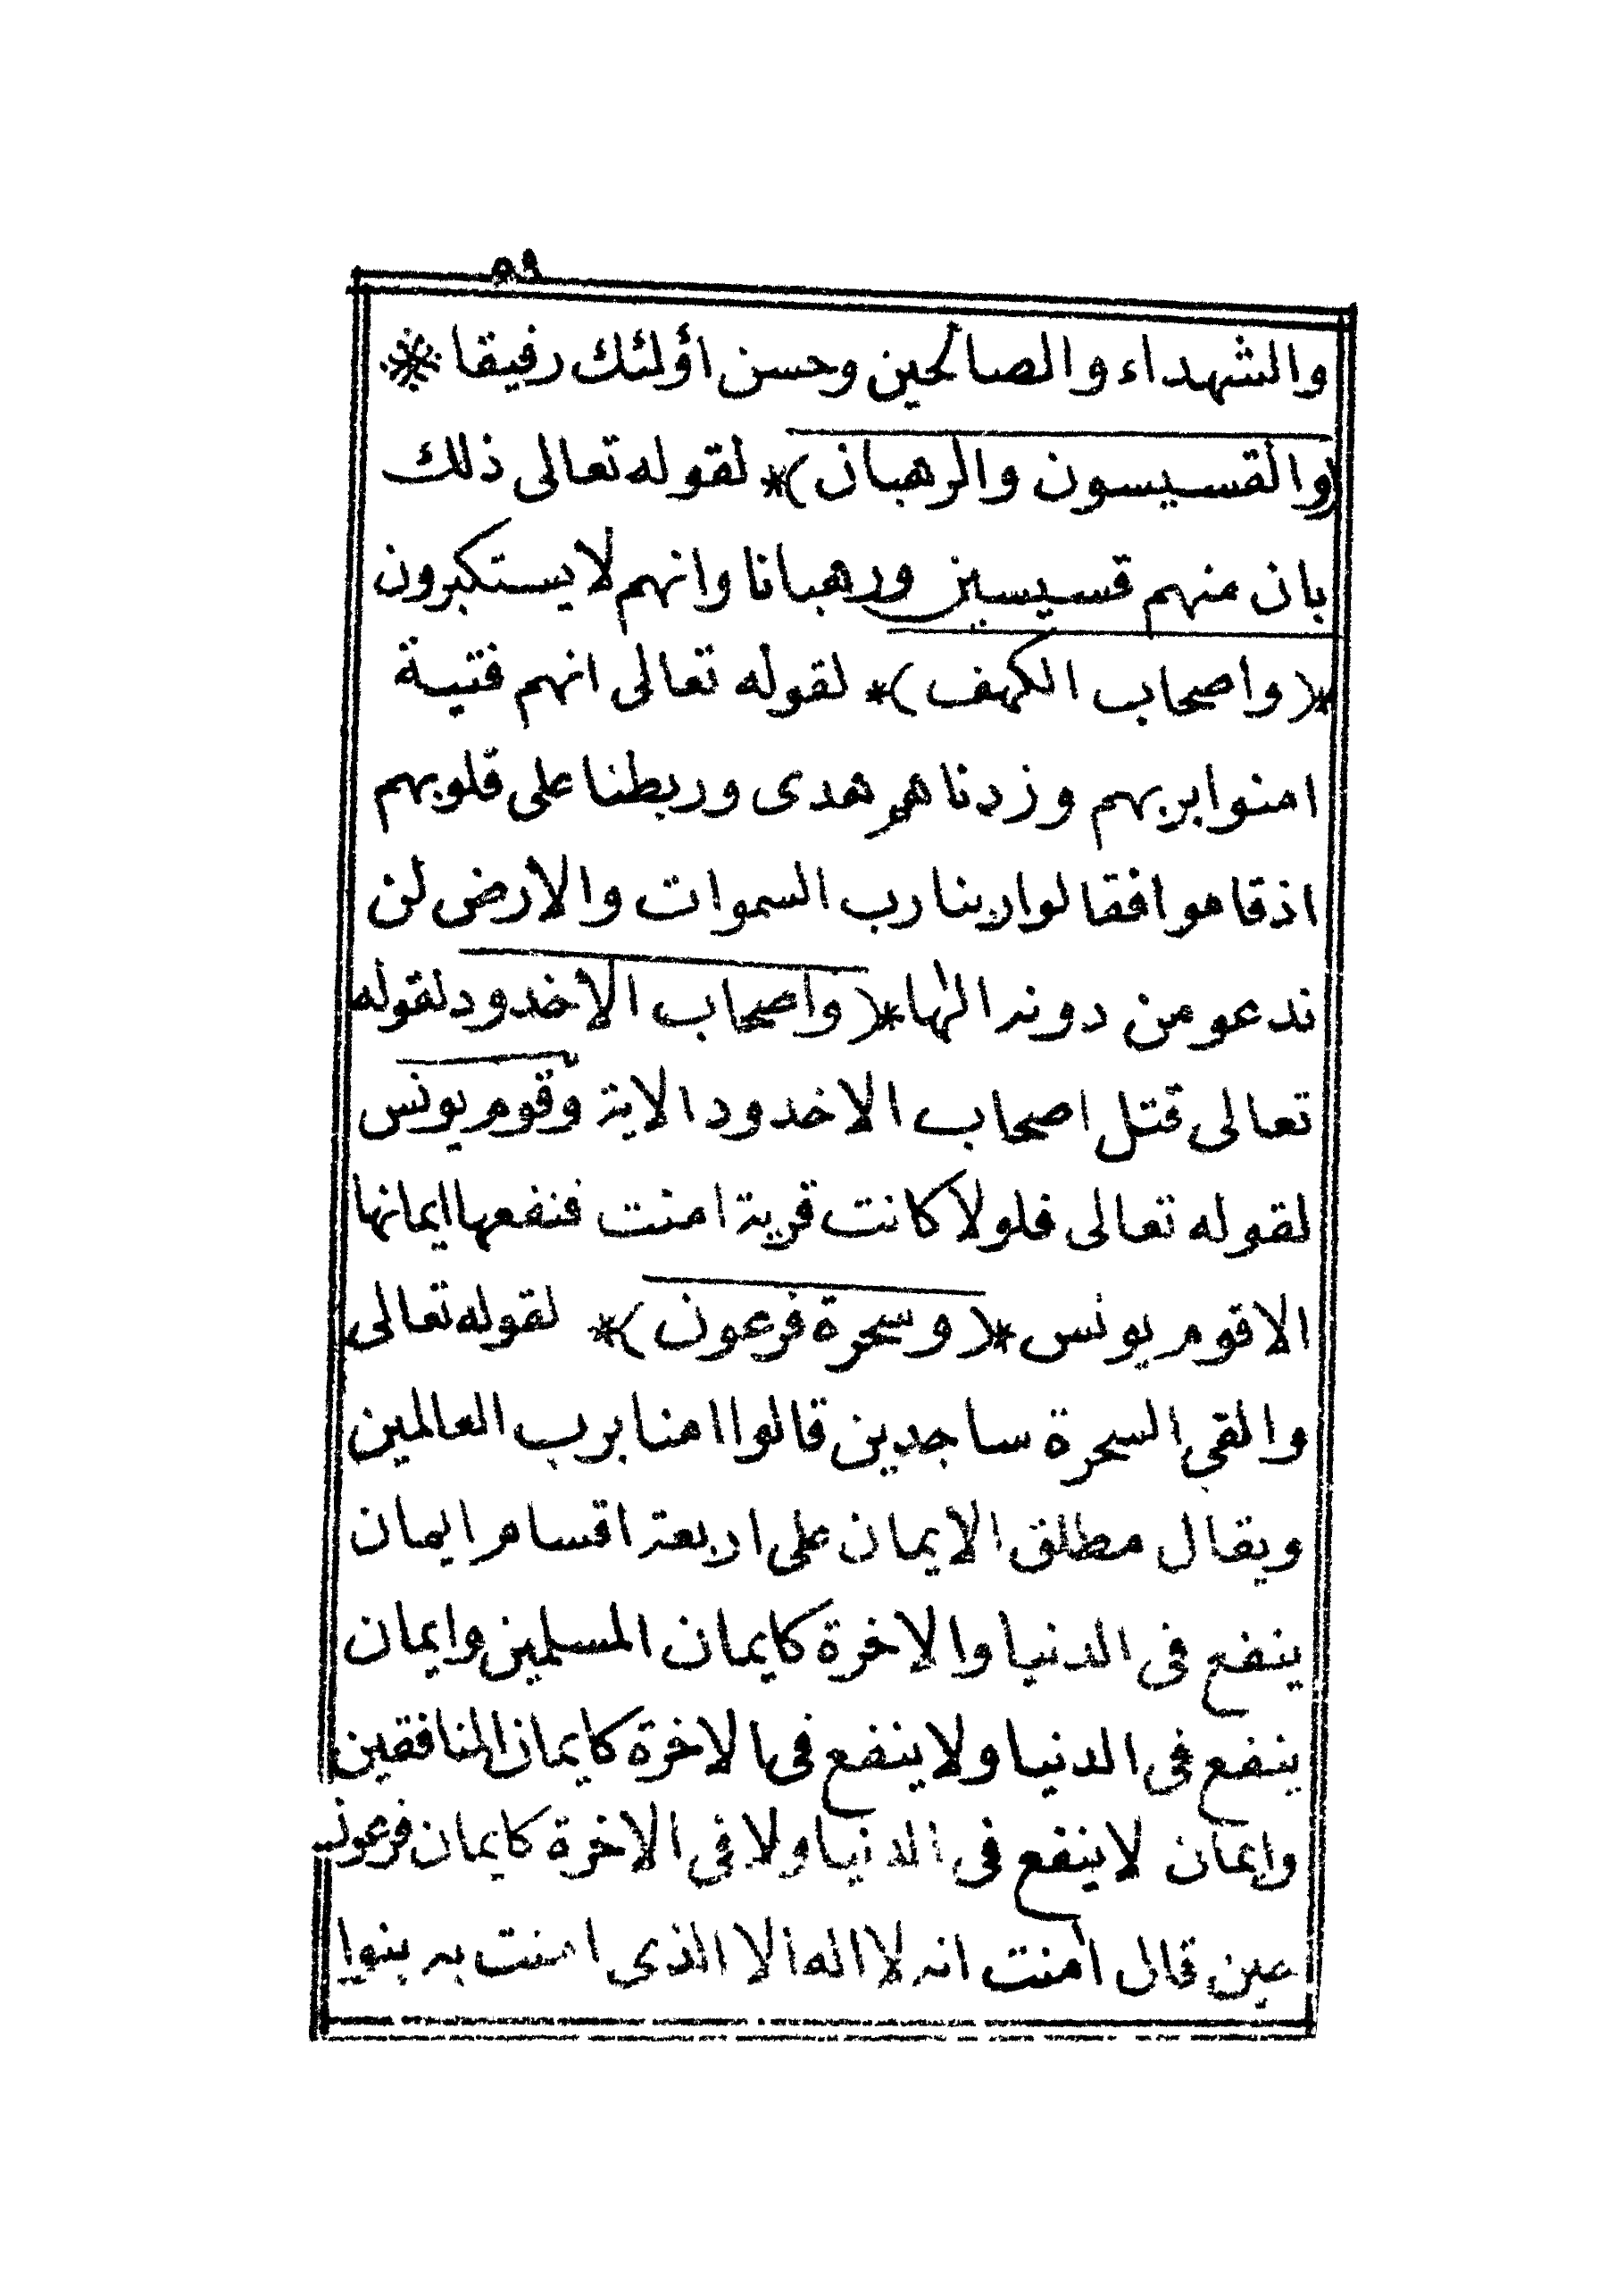 ٥٩
والشهداء والصالحين وحسن اؤلئك رفيقا *
(والقسيسون والرهبان)* لقوله تعالى ذلك
بان منهم قسيسين ورهبانا وانهم لا يستكبرون
*(واصحاب الكهف)* لقوله تعالى انهم فتية
امنوا بربهم وزدناهم هدى وربطنا على قلوبهم
اذ قاموا فقالوا ربنا رب السموات والارض لن
ندعو من دونه الٰها *(واصحاب الاخدود لقوله
تعالى قتل اصحاب الاخدود الاية وقوم يونس
لقوله تعالى فلولا كانت قرية امنت فنفعها ايمانها
الا قوم يونس *(وسحرة فرعون)* لقوله تعالى
والقي السحرة ساجدين قالوا امنا برب العالمين
ويقال مطلق الايمان على اربعة اقسام ايمان
ينفع فى الدنيا والاخرة كايمان المسلمين وايمان
ينفع فى الدنيا ولا ينفع فى الاخرة كايمان المنافقين
وايمان لا ينفع فى الدنيا ولا فى الاخرة كايمان فرعون
عين قال امنت انه لا اله الا الذى امنت به بنوا